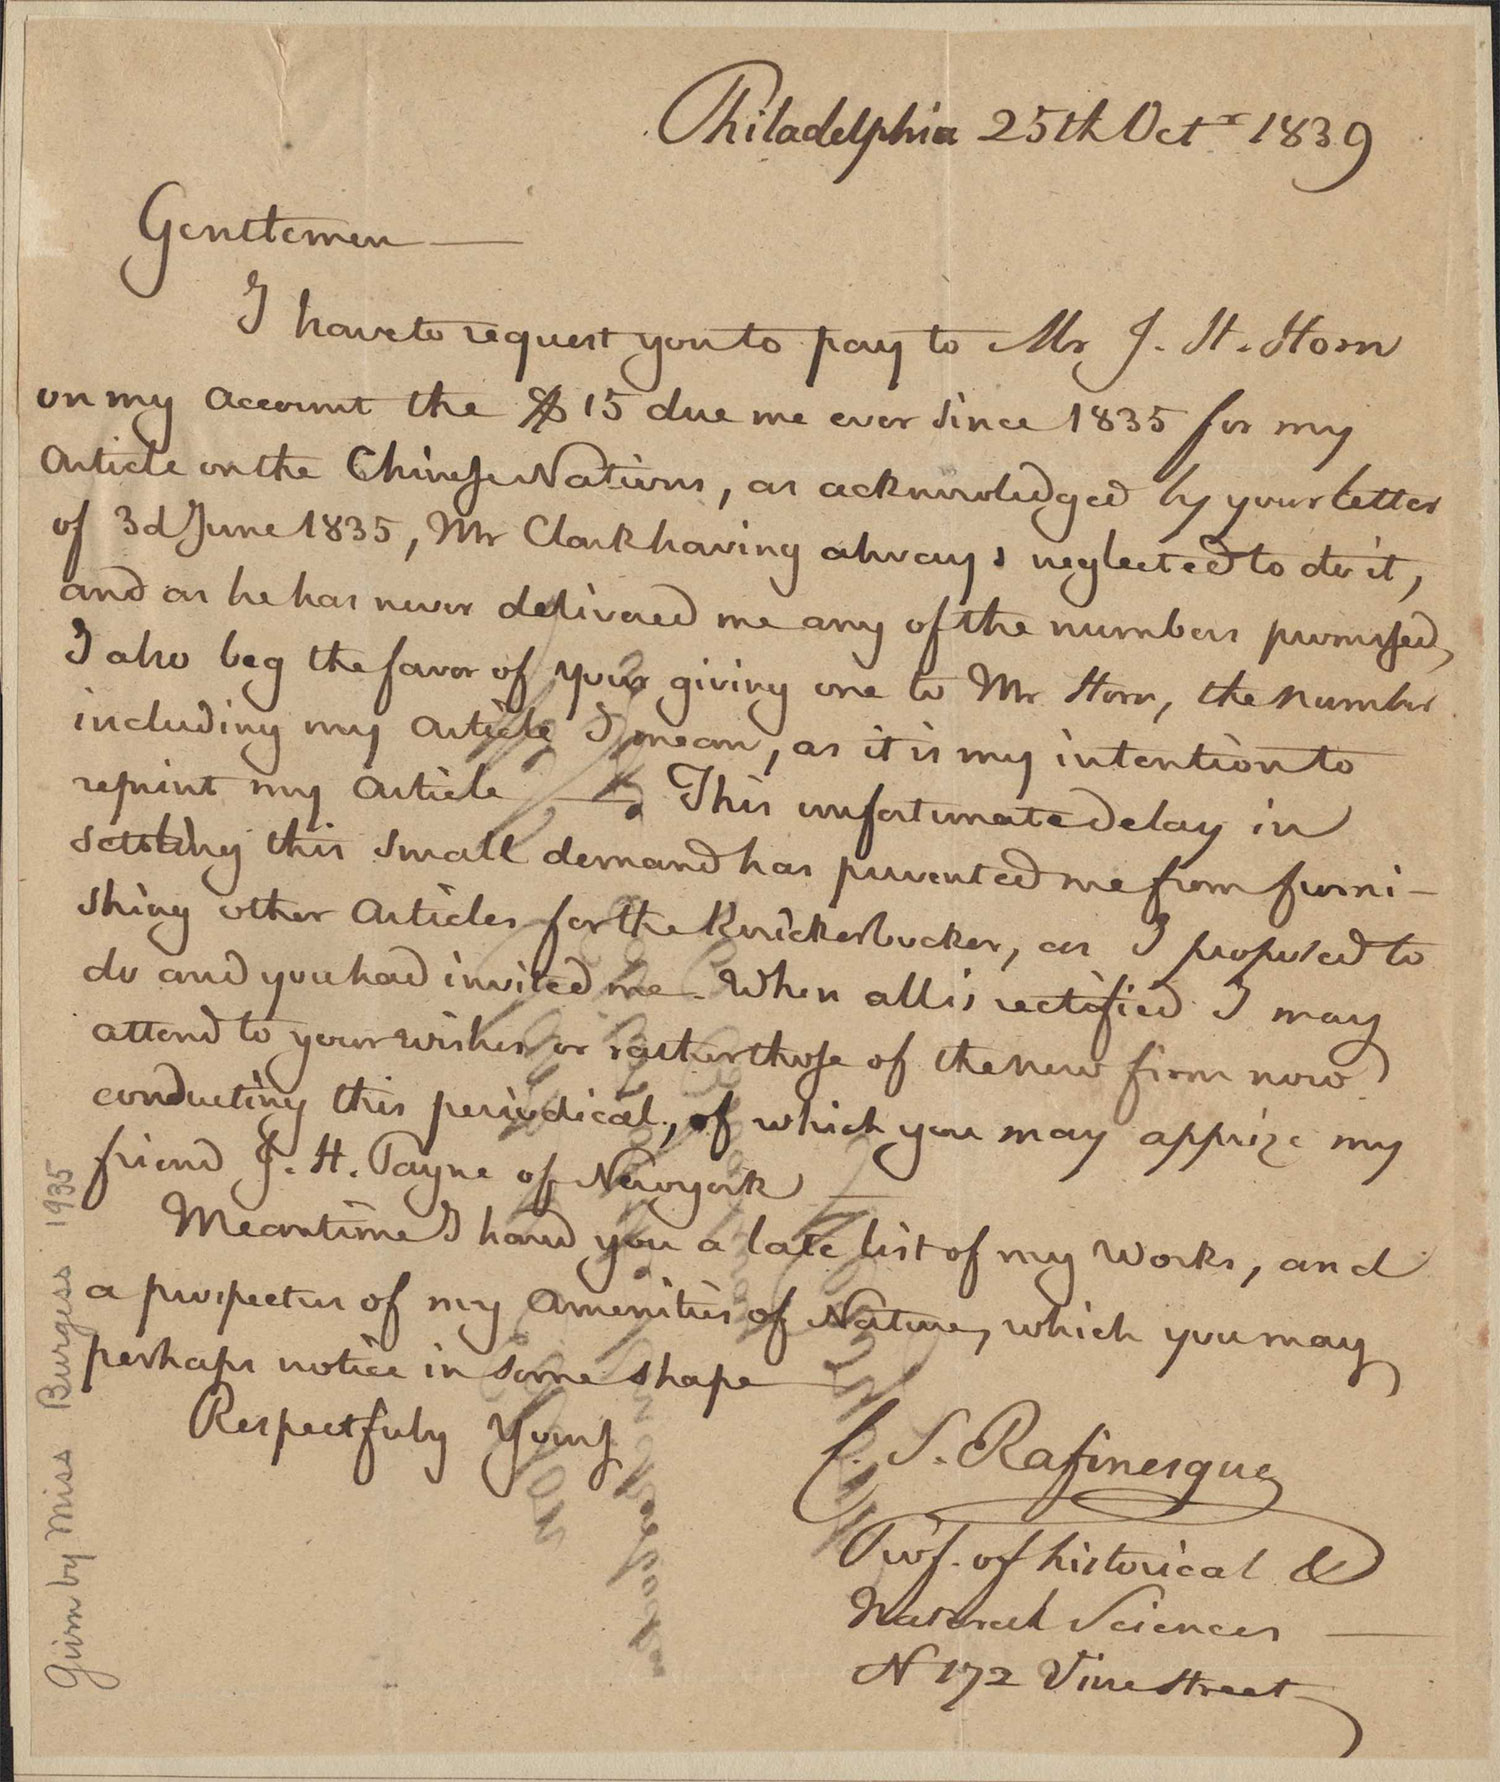 Philadelphia 25th Octr 1839
Gentlemen —
I have to request you to pay to Mr J. H. Horn
on my account the $15 due me ever since 1835 for my
Article on the Chinese Nations, as acknowledged by your letter
of 3d June 1835, Mr Clark having always neglected to do it,
and as he has never delivered me any of the numbers promised,
I also beg the favor of your giving one to Mr Horn, the number
including my Article I mean, as it is my intention to
reprint my Article —. This unfortunate delay in
settling this small demand has prevented me from furni-
shing other Articles for the Knickerbocker, as I proposed to
do and you had invited me. When all is rectified I may
attend to your wishes or rather those of the new firm now
conducting this periodical, of which you may apprize my
friend J. H. Payne of Newyork —
Meantime I hand you a late list of my Works, and
a prospectus of my Amenities of Nature, which you may
perhaps notice in some shape —
Respectfuly Yours
C. S. Rafinesque
Prof. of historical &
Natural Sciences —
N 172 Vine Street
Given by Miss Burgess 1935